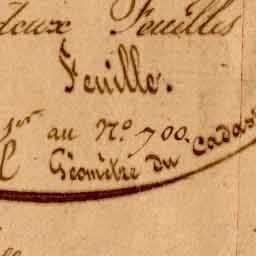 deux Feuilles
Feuille.
1er au No. 700.
Géomètre du Cadas